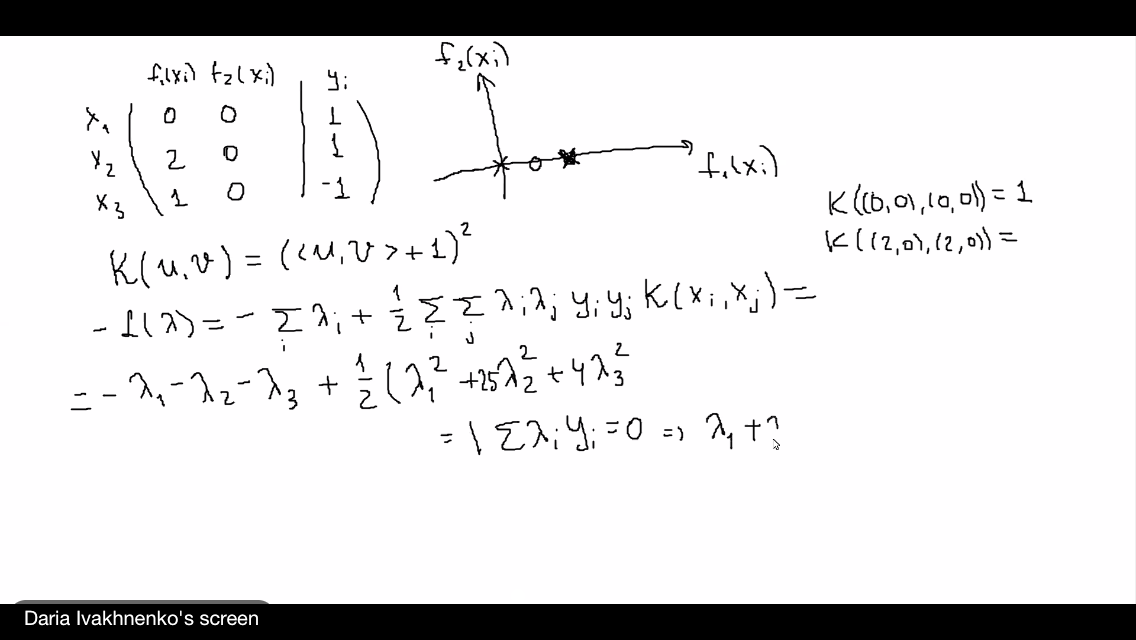 f₁(xᵢ) f₂(xᵢ) yᵢ
x₁ 0 0 1
x₂ 2 0 1
x₃ 1 0 -1
f₂(xᵢ)
f₁(xᵢ)
K((0,0),(0,0)) = 1
K((2,0),(2,0)) =
K(u,v) = (<u,v>+1)²
- L(λ) = - Σᵢ λᵢ + 1/2 Σᵢ Σⱼ λᵢ λⱼ yᵢ yⱼ K(xᵢ,xⱼ) =
= - λ₁ - λ₂ - λ₃ + 1/2 (λ₁² + 25λ₂² + 4λ₃²
= | Σ λᵢ yᵢ = 0 => λ₁ +
Daria Ivakhnenko's screen